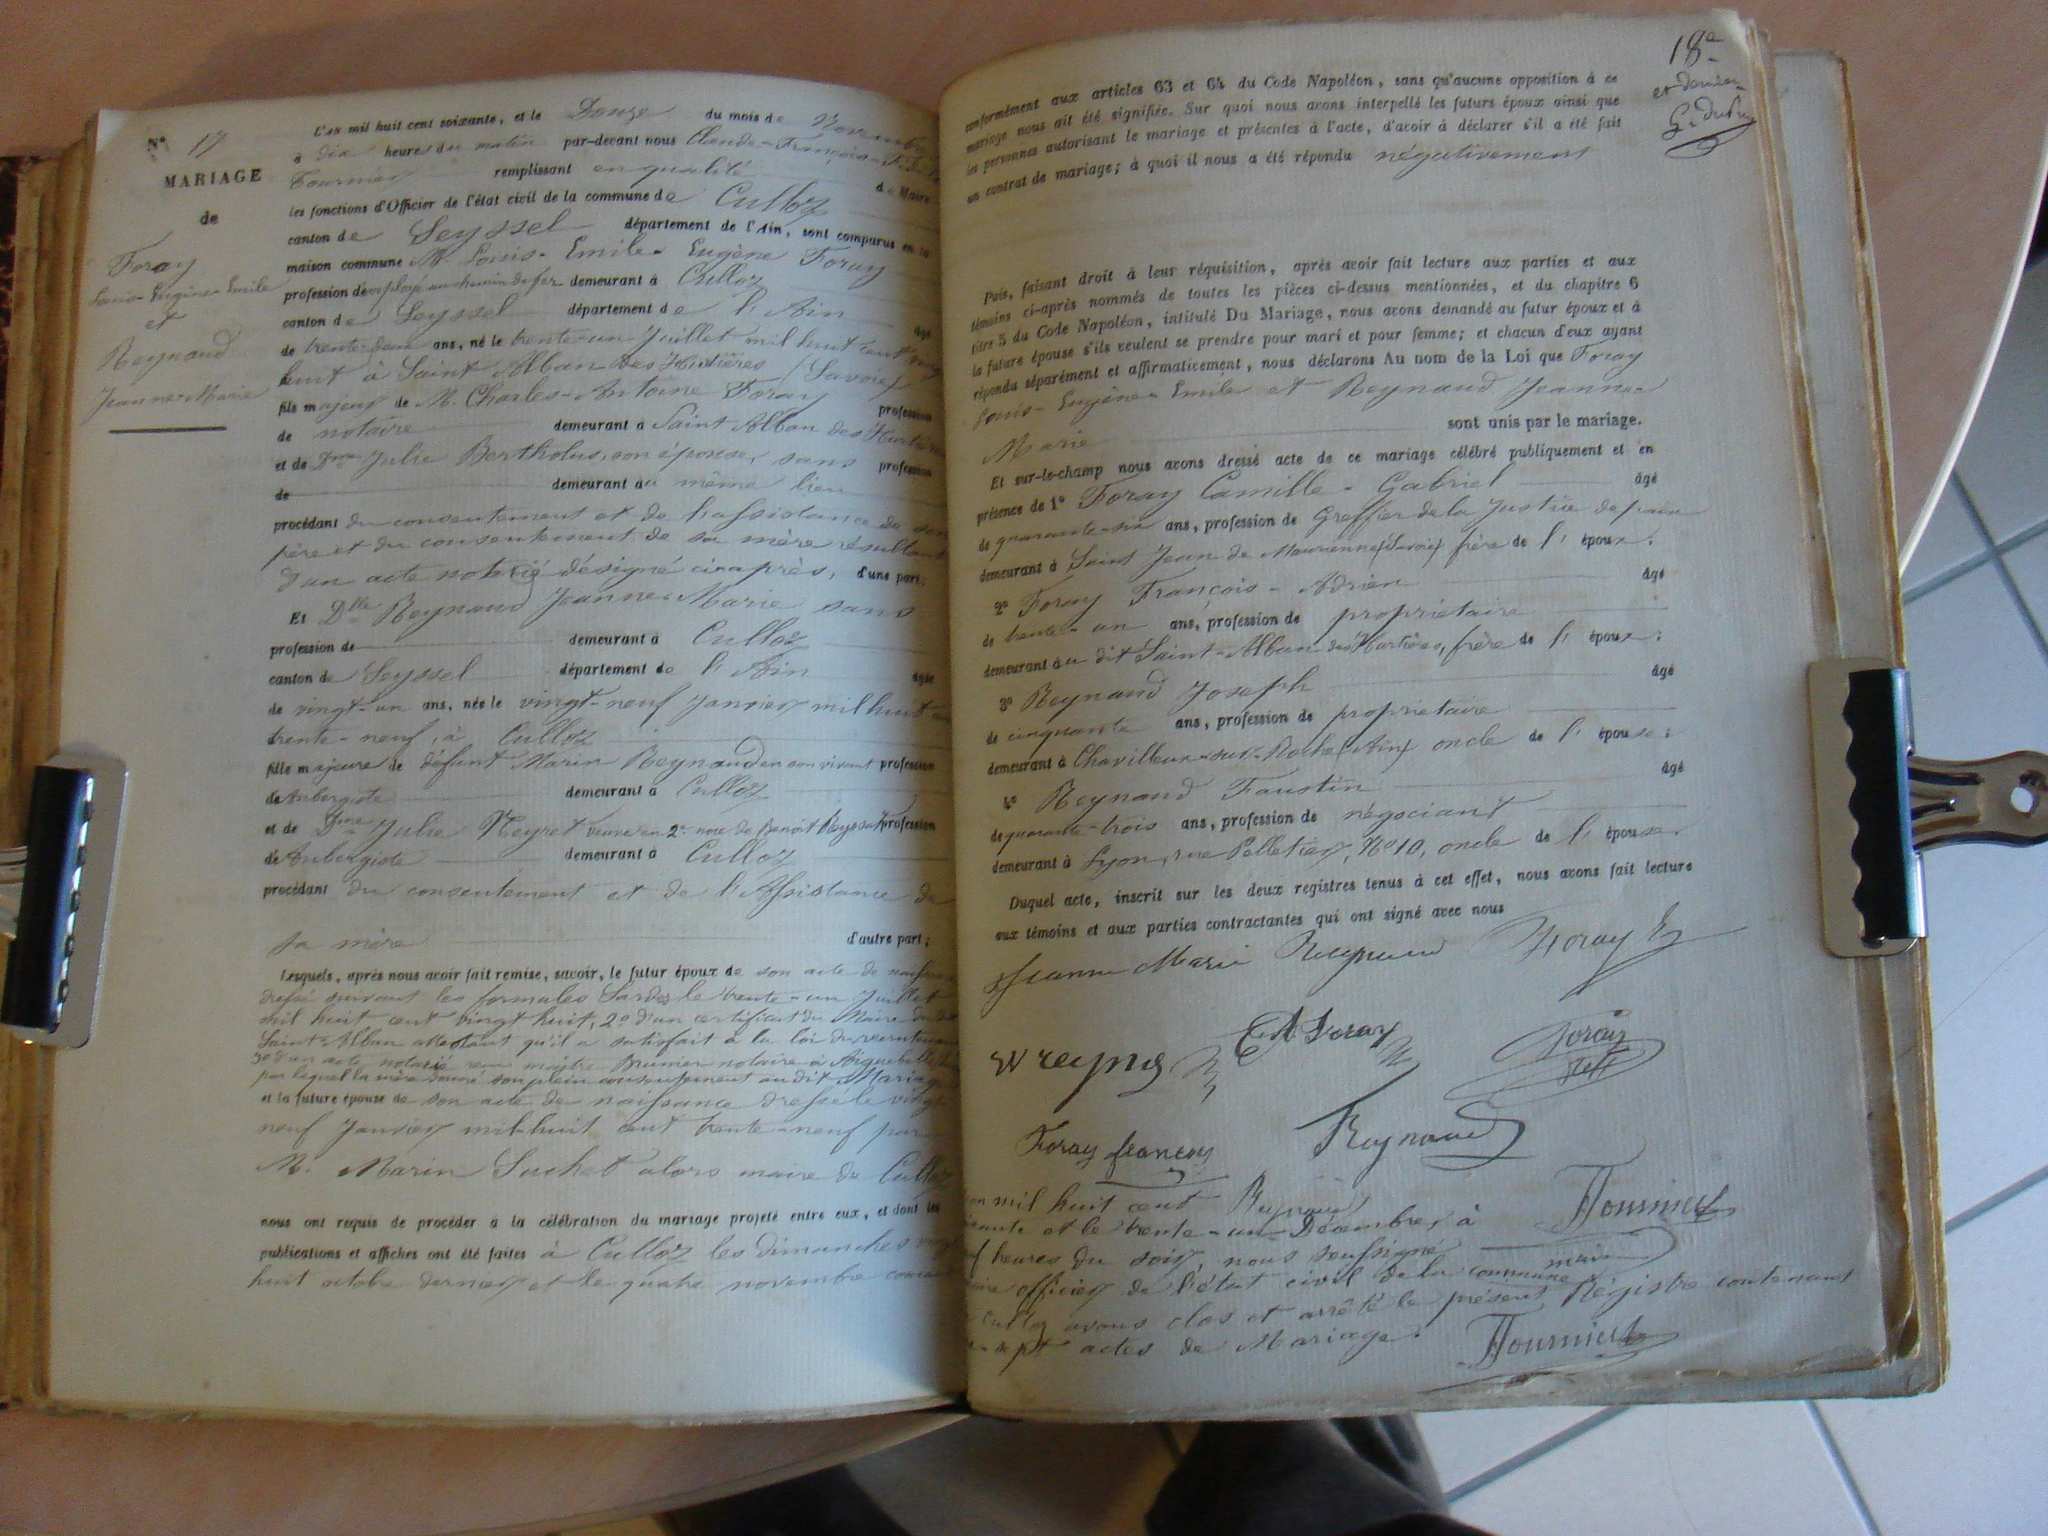 N° 17
MARIAGE
de
Foray
Louis-Eugène-Emile
et
Reynaud
Jeanne-Marie
L'AN mil huit cent soixante, et le Douze du mois de Novembre
à dix heures du matin par-devant nous Claude-François
Fournier remplissant en qualité de Maire
les fonctions d'Officier de l'état civil de la commune de Culloz
canton de Seyssel département de l'Ain, sont comparus en la
maison commune M. Louis-Emile-Eugène Foray
profession d'employé au chemin de fer demeurant à Culloz
canton de Seyssel département de l'Ain âgé
de trente-deux ans, né le trente-un Juillet mil huit cent vingt
huit à Saint Alban des Hurtières (Savoie)
fils majeur de M. Charles-Antoine Foray profession
de notaire demeurant à Saint Alban des Hurtières
et de Dme Julie Bertholus, son épouse, sans profession
de demeurant au même lieu
procédant du consentement et de l'assistance de son
père et du consentement de sa mère résultant
d'un acte notarié désigné ci-après, d'une part;
Et Dlle Reynaud Jeanne-Marie sans
profession de demeurant à Culloz
canton de Seyssel département de l'Ain âgée
de vingt-un ans, née le vingt-neuf Janvier mil huit cent
trente-neuf, à Culloz
fille majeure de défunt Marin Reynaud en son vivant profession
de Aubergiste demeurant à Culloz
et de Dme Julie Neyret veuve en 2es noce de Benoit profession
de Aubergiste demeurant à Culloz
procédant du consentement et de l'Assistance de
sa mère d'autre part;
Lesquels, après nous avoir fait remise, savoir, le futur époux de son acte de naissance
dressé suivant les formules Sardes le trente-un Juillet
mil huit cent vingt huit, 2° d'un certificat du Maire du dit
Saint-Alban attestant qu'il a satisfait à la loi du recrutement
3° d'un acte notarié reçu maître Brunier notaire à Aiguebelle
par lequel la mère donne son plein consentement au dit Mariage
et la future épouse de son acte de naissance dressé le vingt
neuf Janvier mil-huit cent trente-neuf par
M. Marin Suchet alors maire de Culloz
nous ont requis de procéder à la célébration du mariage projeté entre eux, et dont les
publications et affiches ont été faites à Culloz les dimanches vingt
huit octobre dernier et le quatre novembre courant
18e
et dernier
G. Dupuy
conformément aux articles 63 et 64 du Code Napoléon, sans qu'aucune opposition à ce
mariage nous ait été signifiée. Sur quoi nous avons interpellé les futurs époux ainsi que
les personnes autorisant le mariage et présentes à l'acte, d'avoir à déclarer s'il a été fait
un contrat de mariage; à quoi il nous a été répondu négativement
Puis, faisant droit à leur réquisition, après avoir fait lecture aux parties et aux
témoins ci-après nommés de toutes les pièces ci-dessus mentionnées, et du chapitre 6
titre 5 du Code Napoléon, intitulé Du Mariage, nous avons demandé au futur époux et à
la future épouse s'ils veulent se prendre pour mari et pour femme; et chacun d'eux ayant
répondu séparément et affirmativement, nous déclarons Au nom de la Loi que Foray
Louis-Eugène-Emile et Reynaud Jeanne-
Marie sont unis par le mariage.
Et sur-le-champ nous avons dressé acte de ce mariage célébré publiquement et en
présence de 1° Foray Camille-Gabriel âgé
de quarante-six ans, profession de Greffier de la Justice de paix
demeurant à Saint Jean de Maurienne (Savoie) frère de l' époux;
2° Foray François-Adrien âgé
de trente-un ans, profession de propriétaire
demeurant au dit Saint-Alban-des-Hurtières, frère de l' époux;
3° Reynaud Joseph âgé
de cinquante ans, profession de propriétaire
demeurant à Chavilleux-sur-Roche (Ain) oncle de l' épouse;
4° Reynaud Faustin âgé
de quarante-trois ans, profession de négociant
demeurant à Lyon, rue Pelletier, N° 10, oncle de l' épouse
Duquel acte, inscrit sur les deux registres tenus à cet effet, nous avons fait lecture
aux témoins et aux parties contractantes qui ont signé avec nous
Jeanne Marie Reynaud Foray E
Foray
Foray
Foray françois Reynaud
Reynaud
Fournier
maire
L'an mil huit cent
soixante et le trente-un Décembre, à
heures du soir, nous soussigné
maire officier de l'état civil de la commune
de Culloz avons clos et arrêté le présent Régistre contenant
dix-sept actes de Mariage.
Fournier